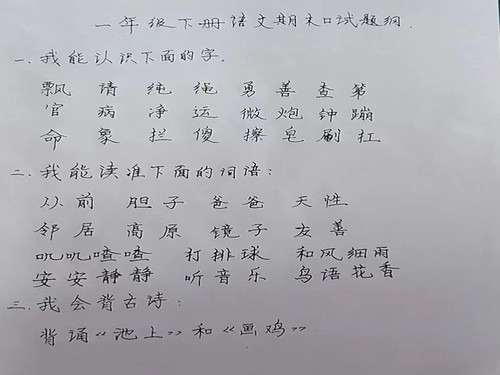 一年级下册语文期末口试题纲.
一.我能认识下面的字.
飘 请 纯 绳 勇 善 查 第
官 病 净 运 微 炮 钟 蹦
命 象 拦 傻 擦 皂 刷 扛
二.我能读准下面的词语:
从前 胆子 爸爸 天性
邻居 高原 镜子 友善
叽叽喳喳 打排球 和风细雨
安安静静 听音乐 鸟语花香
三.我会背古诗:
背诵《池上》和《画鸡》